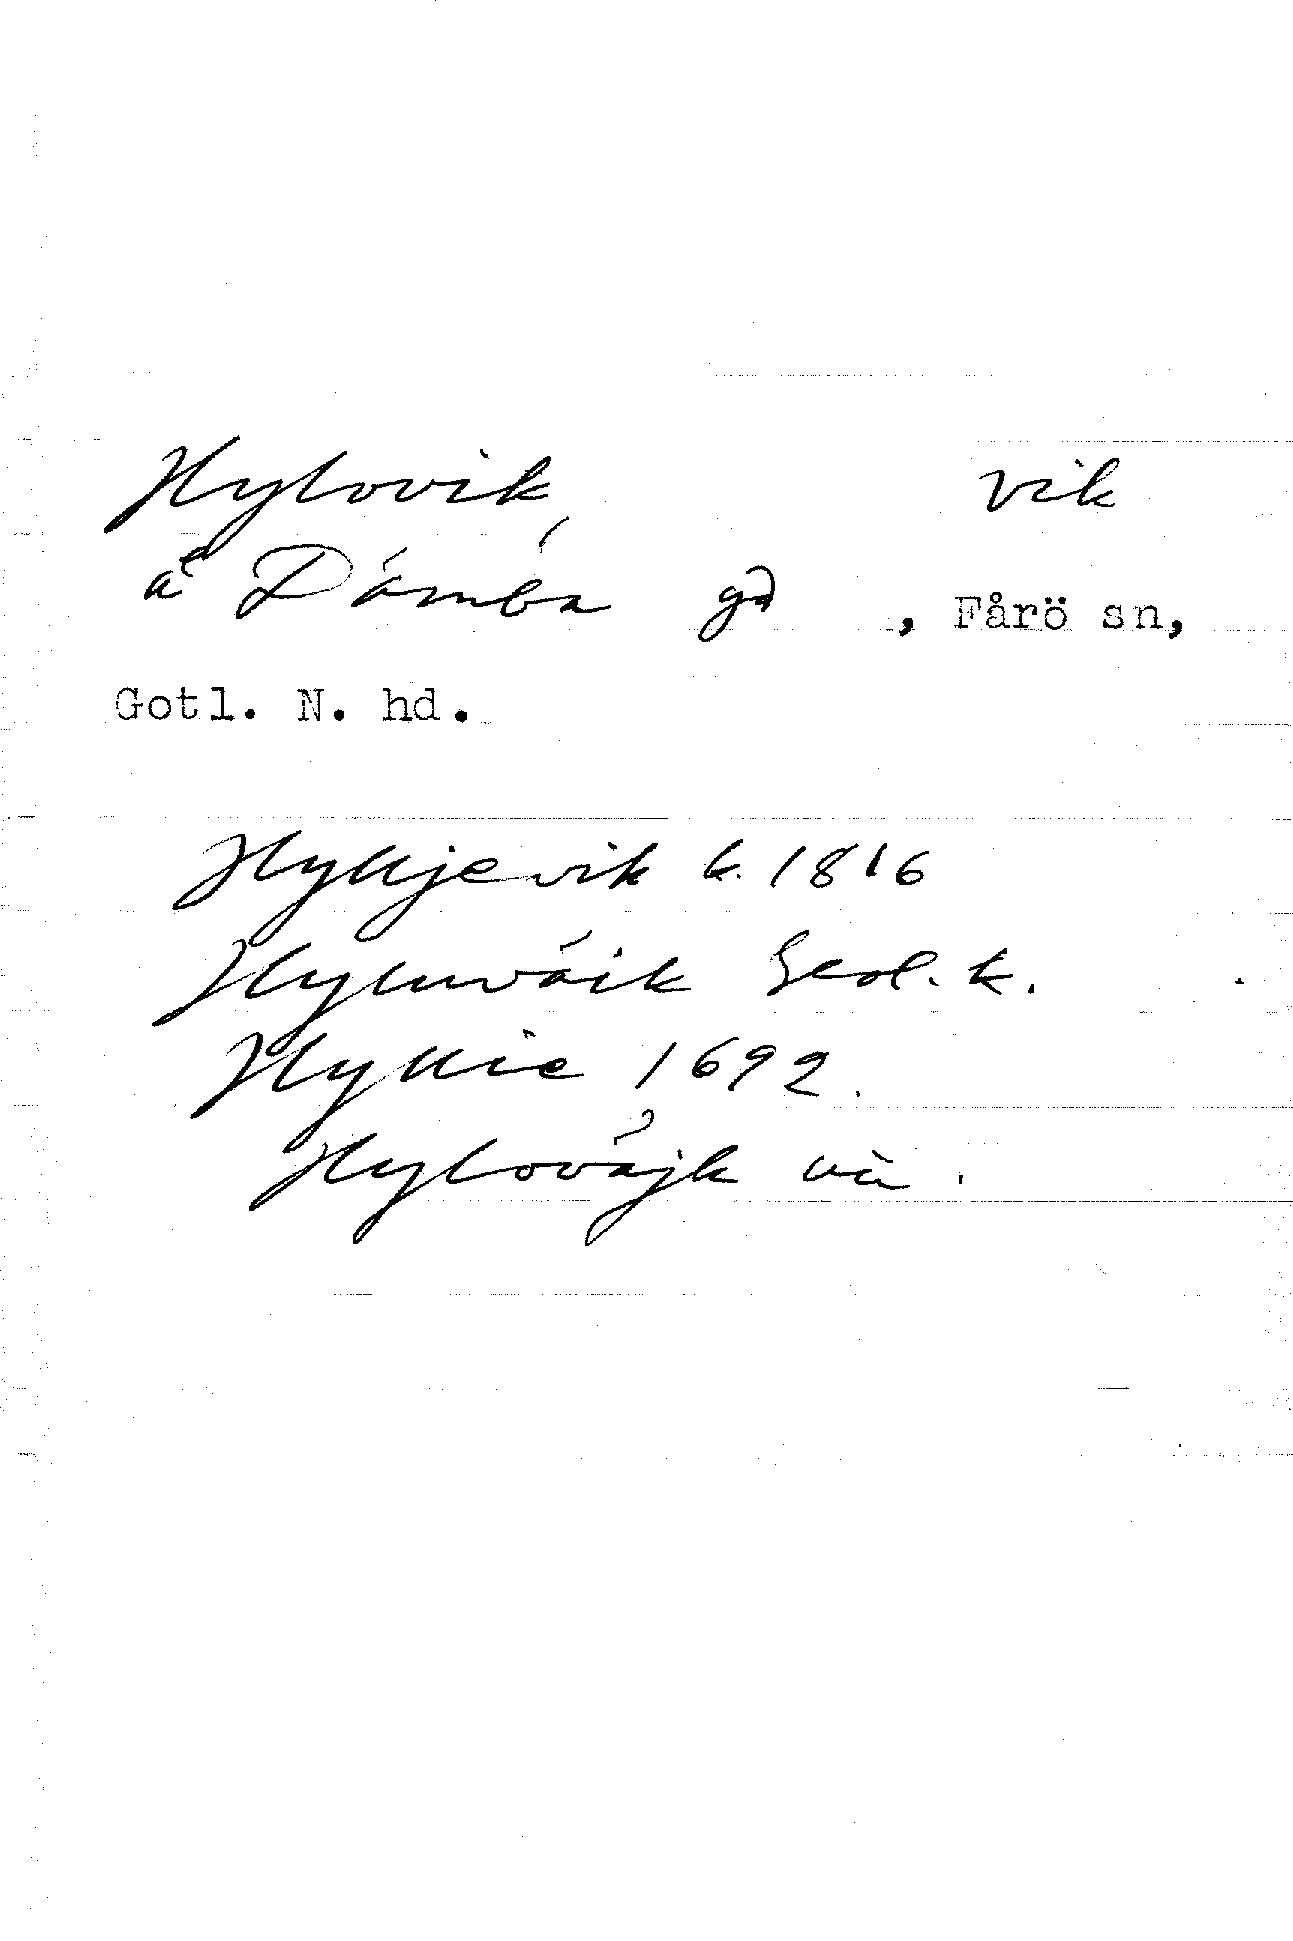 Hylovik, vik
å Dämba gd , Fårö sn,
Gotl. N. hd.
Hylljevik k. 1816
Hyluväik Geol. k.
Hyllie 1692.
Hylovājk uå.